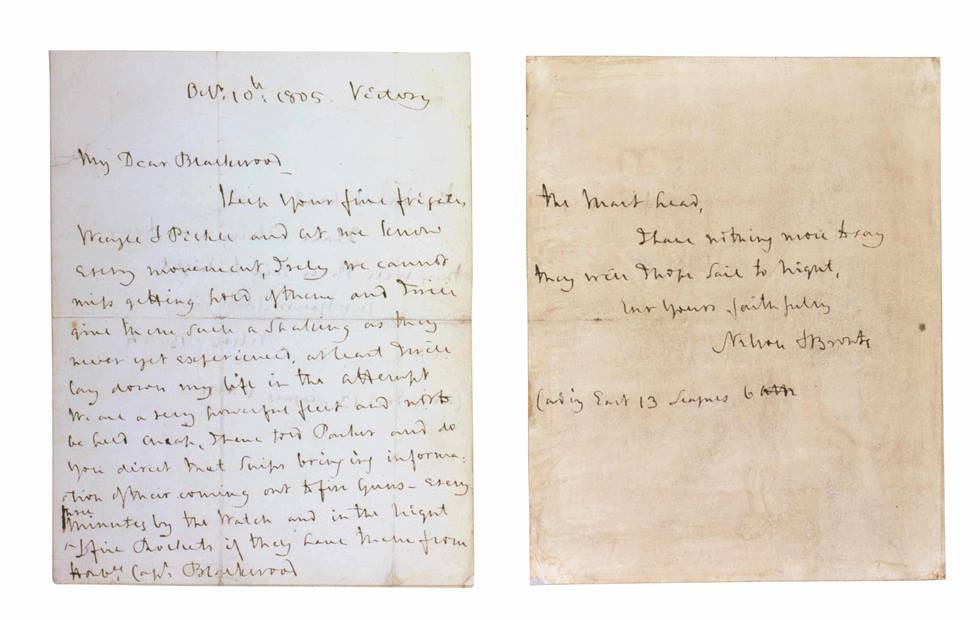 Octr. 10th: 1805. Victory
My Dear Blackwood
Keep your fine frigates
Weazle & Pickle and let me know
Every movement, I rely we cannot
miss getting hold of them and I will
give them such a shaking as they
never yet experienced, at least I will
lay down my life in the attempt
We are a very powerful fleet and not to
be held cheap, I have told Parker and do
you direct that Ships bringing informa:
:tion of their coming out to fire Guns - Every
three
minutes by the Watch and in the Night
to fire Rockets if they have them from
Honble. Capt. Blackwood
the Mast head,
I have nothing more to say
they will I hope Sail to night,
Ever yours faithfully
Nelson & Bronte
Cadiz East 13 Leagues 6